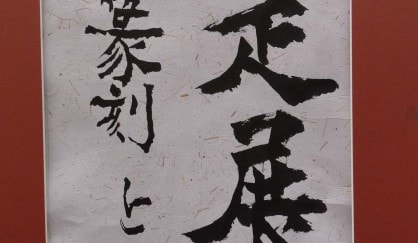 展
篆刻と